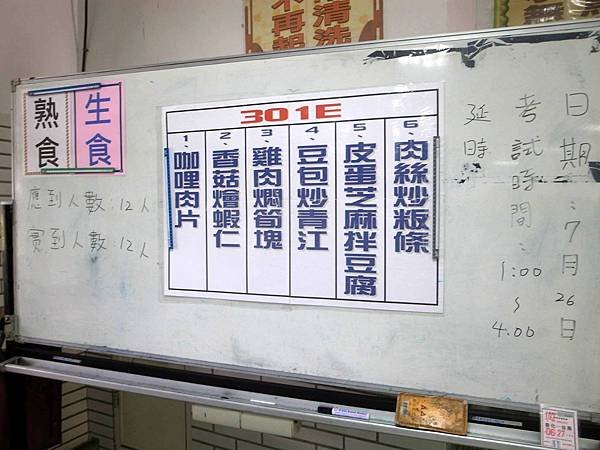 不再報
清洗
熟食
生食
301E
1、咖哩肉片
2、香菇燴蝦仁
3、雞肉燜筍塊
4、豆包炒青江
5、皮蛋芝麻拌豆腐
6、肉絲炒粄條
應到人數:12人
實到人數:12人
日期:7月26日
考試時間:1:00~4:00
延時